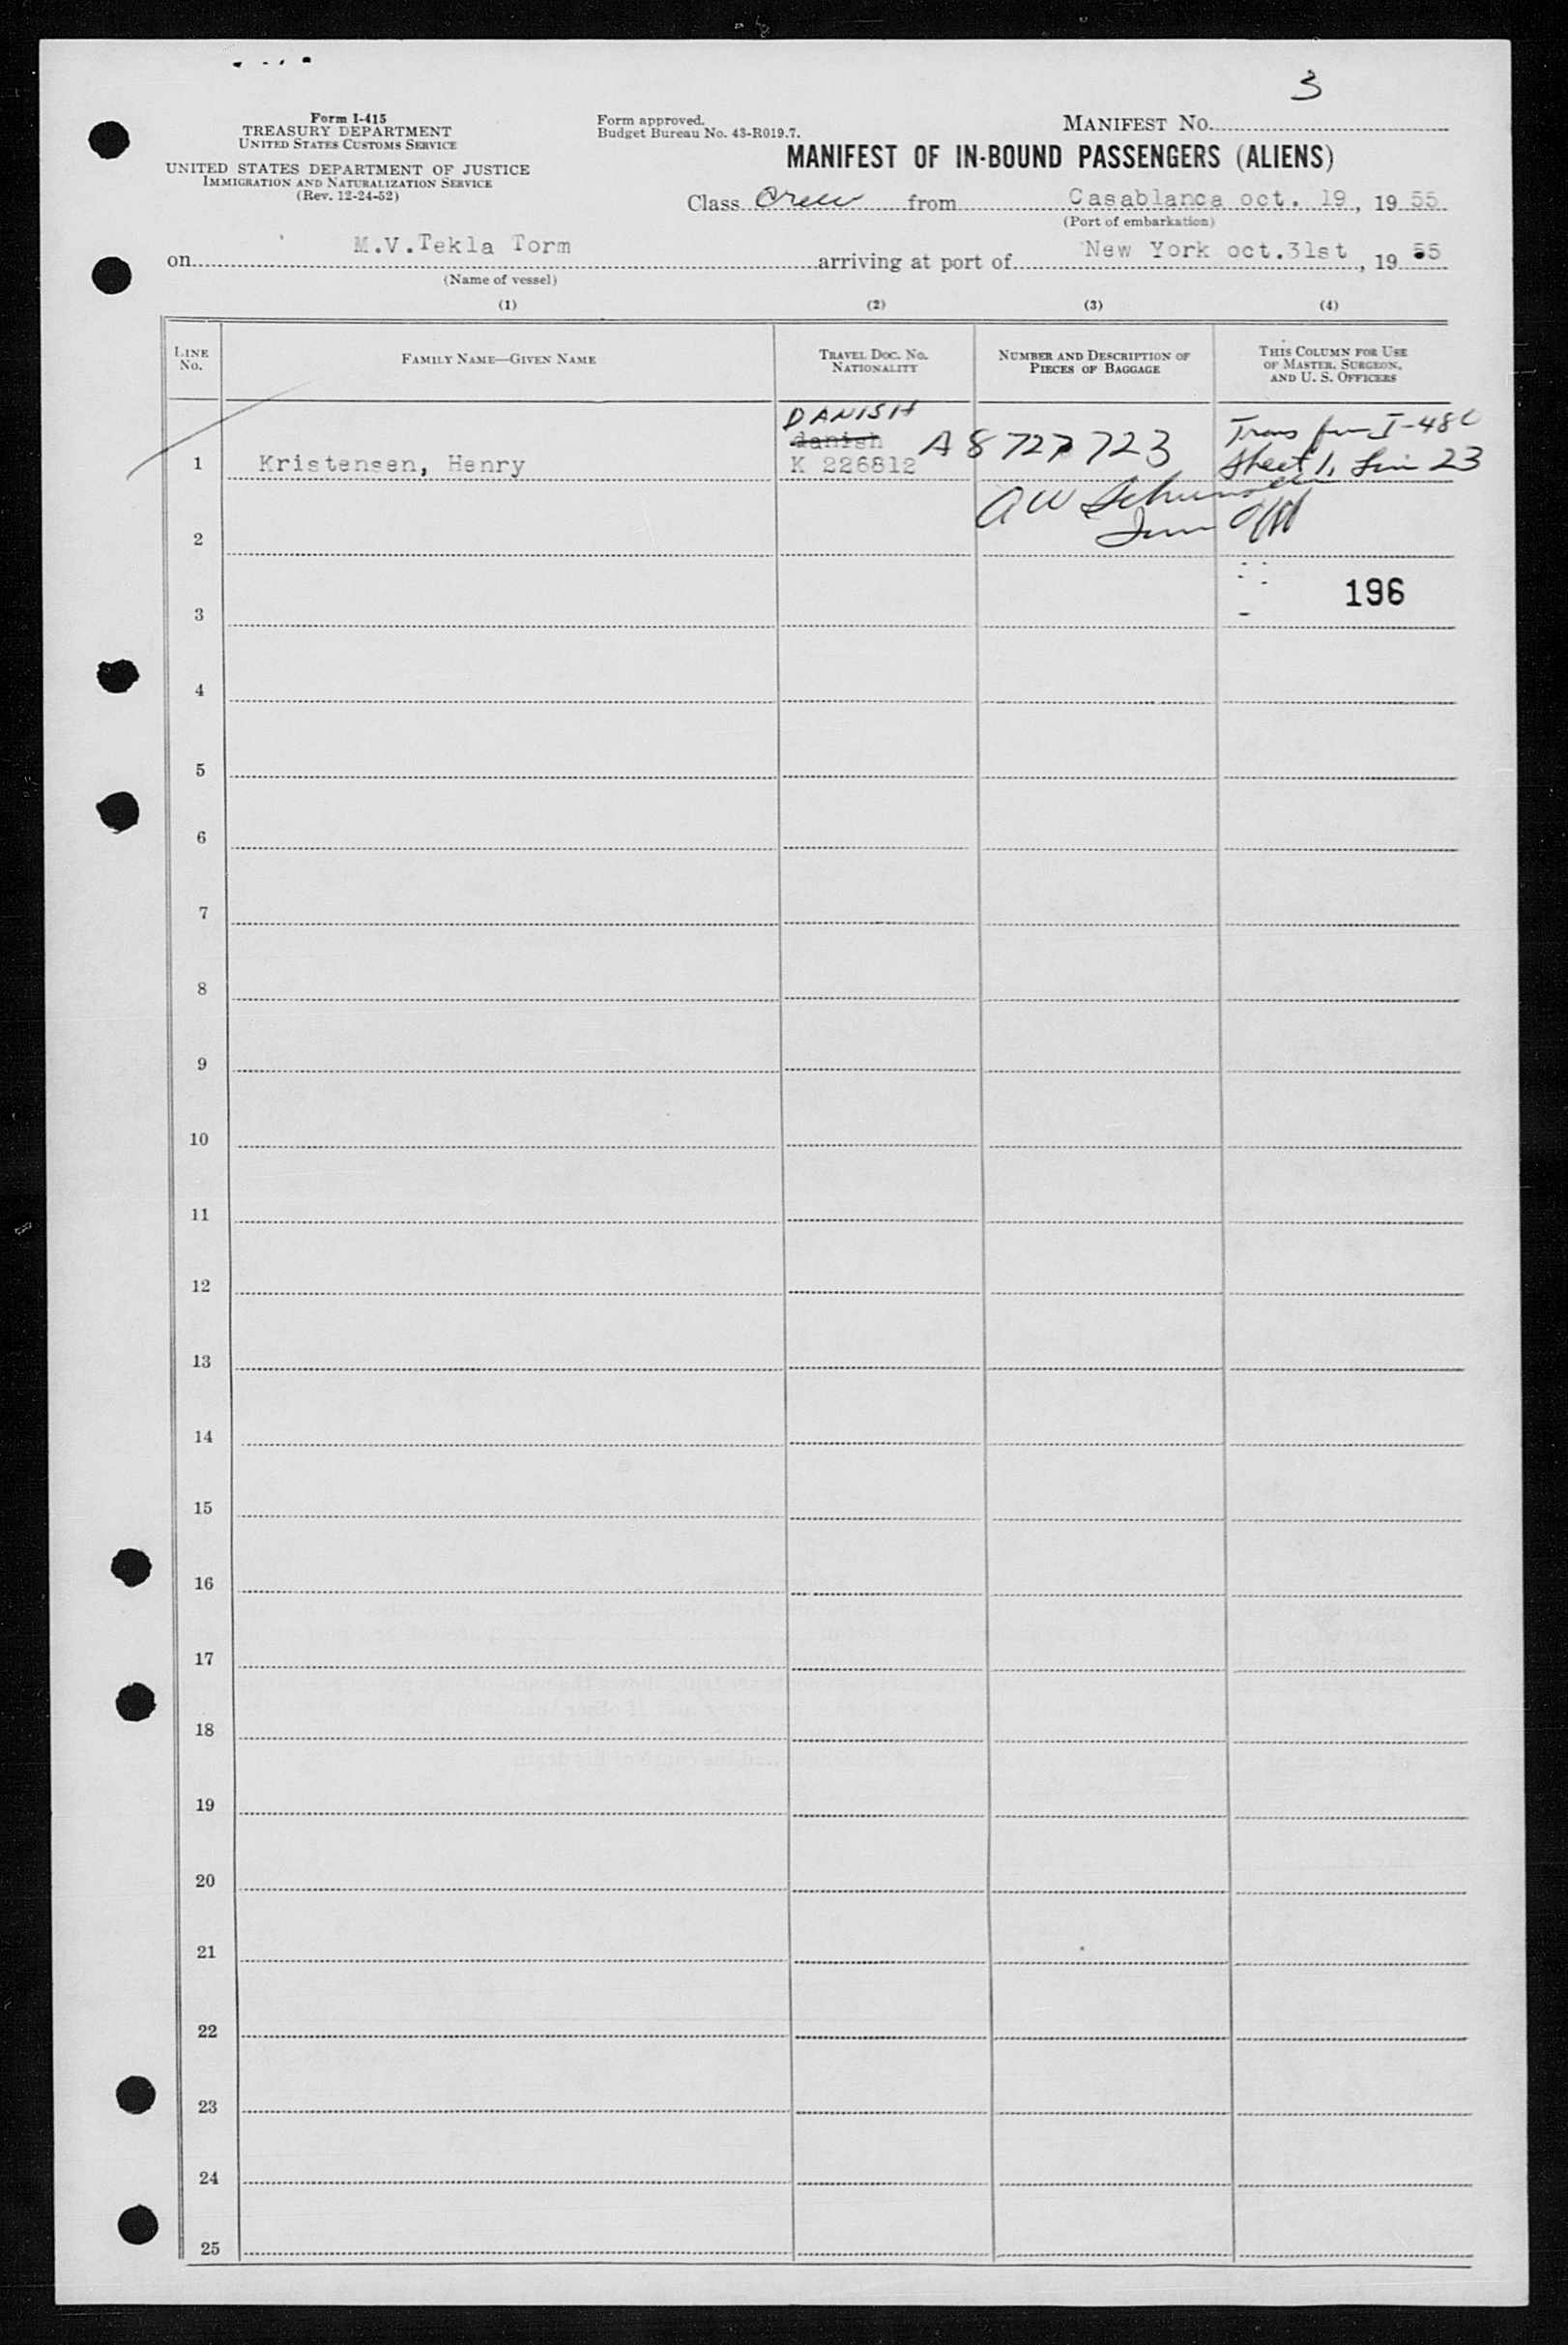 3
Form I-415
TREASURY DEPARTMENT
UNITED STATES CUSTOMS SERVICE
UNITED STATES DEPARTMENT OF JUSTICE
IMMIGRATION AND NATURALIZATION SERVICE
(Rev. 12-24-52)
Form approved.
Budget Bureau No. 43-R019.7.
MANIFEST NO.
MANIFEST OF IN-BOUND PASSENGERS (ALIENS)
Class Crew from Casablanca oct. 19, 1955
(Port of embarkation)
on M.V.Tekla Torm arriving at port of New York oct.31st, 1955
(Name of vessel)
(1) (2) (3) (4)
LINE NO. FAMILY NAME—GIVEN NAME TRAVEL DOC. NO. NATIONALITY NUMBER AND DESCRIPTION OF PIECES OF BAGGAGE THIS COLUMN FOR USE OF MASTER, SURGEON, AND U. S. OFFICERS
DANISH
danish A8727723 Trans I-480
1 Kristensen, Henry K 226812 Sheet 1, Line 23
A W
2
196
3
4
5
6
7
8
9
10
11
12
13
14
15
16
17
18
19
20
21
22
23
24
25